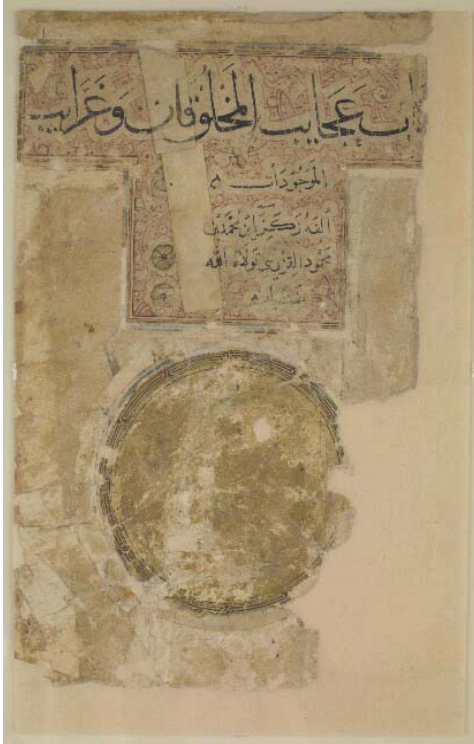 ـاب عجايب المخلوقات وغرايب
الموجودات
ألفه زكريا بن محمد بن
محمود القزويني تولاه الله